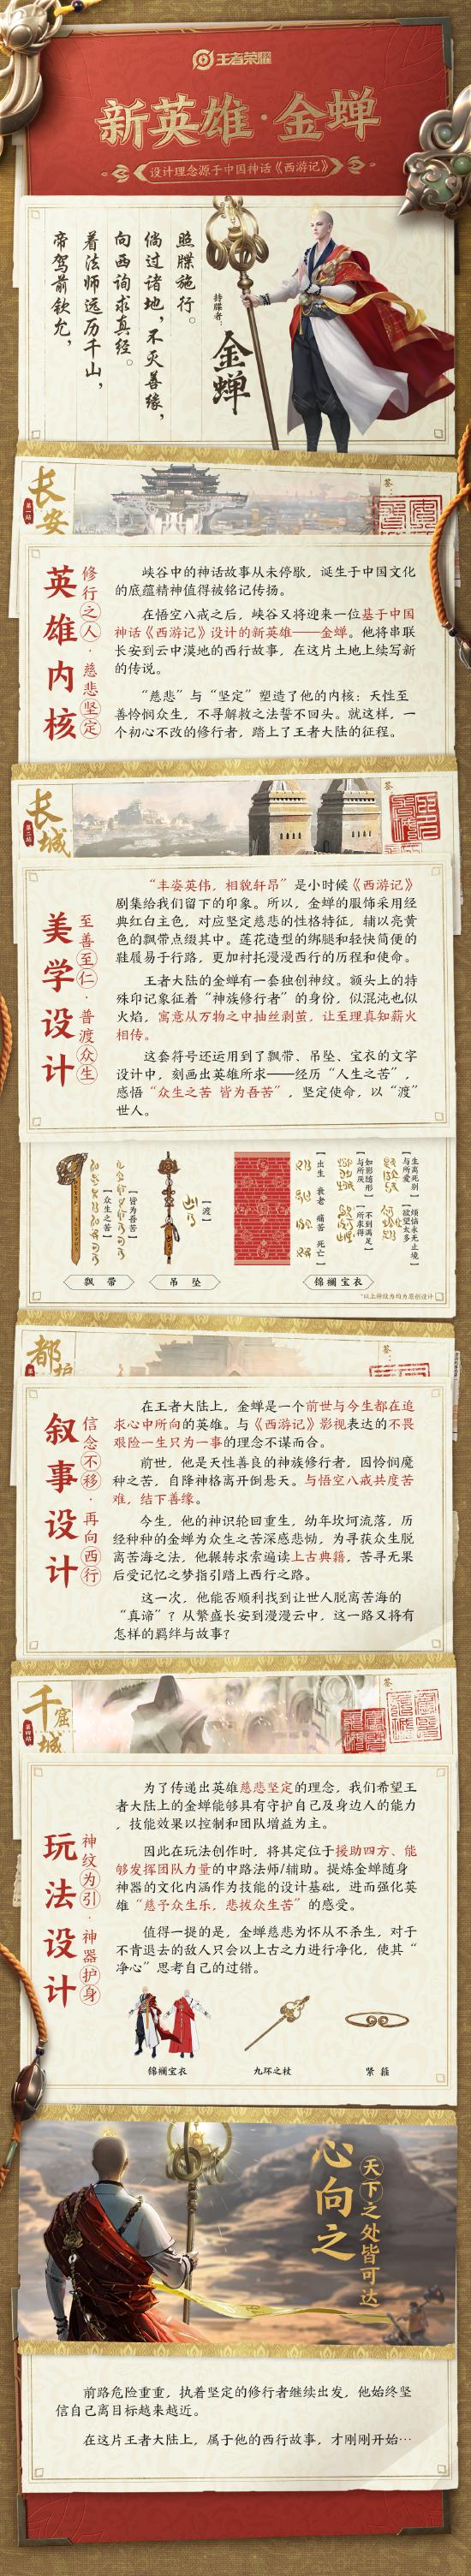 王者荣耀
新英雄·金蝉
设计理念源于中国神话《西游记》
照牒施行。
倘过诸地，不灭善缘，
向西询求真经。
着法师远历千山，
帝驾前钦允，
持牒者：
金蝉
长安
第一站
签：
英雄内核
修行之人·慈悲坚定
峡谷中的神话故事从未停歇，诞生于中国文化
的底蕴精神值得被铭记传扬。
在悟空八戒之后，峡谷又将迎来一位基于中国
神话《西游记》设计的新英雄——金蝉。他将串联
长安到云中漠地的西行故事，在这片土地上续写新
的传说。
“慈悲”与“坚定”塑造了他的内核：天性至
善怜悯众生，不寻解救之法誓不回头。就这样，一
个初心不改的修行者，踏上了王者大陆的征程。
长城
第二站
签：
美学设计
至善至仁·普渡众生
“丰姿英伟，相貌轩昂”是小时候《西游记》
剧集给我们留下的印象。所以，金蝉的服饰采用经
典红白主色，对应坚定慈悲的性格特征，辅以亮黄
色的飘带点缀其中。莲花造型的绑腿和轻快简便的
鞋履易于行路，更加衬托漫漫西行的历程和使命。
王者大陆的金蝉有一套独创神纹。额头上的特
殊印记象征着“神族修行者”的身份，似混沌也似
火焰，寓意从万物之中抽丝剥茧，让至理真知薪火
相传。
这套符号还运用到了飘带、吊坠、宝衣的文字
设计中，刻画出英雄所求——经历“人生之苦”，
感悟“众生之苦 皆为吾苦”，坚定使命，以“渡”
世人。
【众生之苦】
【皆为吾苦】
【渡】
【出生 衰老 痛苦 死亡】
【如影随形 不到满足】
【与所厌 所求得】
【生离死别 烦恼永无止境】
【与所爱 欲望太多】
飘带
吊坠
锦襕宝衣
*以上神纹为均为原创设计
都护
签：
叙事设计
信念不移·再向西行
在王者大陆上，金蝉是一个前世与今生都在追
求心中所向的英雄。与《西游记》影视表达的不畏
艰险一生只为一事的理念不谋而合。
前世，他是天性善良的神族修行者，因怜悯魔
种之苦，自降神格离开倒悬天。与悟空八戒共度苦
难，结下善缘。
今生，他的神识轮回重生，幼年坎坷流落，历
经种种的金蝉为众生之苦深感悲恸，为寻获众生脱
离苦海之法，他辗转求索遍读上古典籍，苦寻无果
后受记忆之梦指引踏上西行之路。
这一次，他能否顺利找到让世人脱离苦海的
“真谛”？从繁盛长安到漫漫云中，这一路又将有
怎样的羁绊与故事？
千窟城
第四站
签：
玩法设计
神纹为引·神器护身
为了传递出英雄慈悲坚定的理念，我们希望王
者大陆上的金蝉能够具有守护自己及身边人的能力
，技能效果以控制和团队增益为主。
因此在玩法创作时，将其定位于援助四方、能
够发挥团队力量的中路法师/辅助。提炼金蝉随身
神器的文化内涵作为技能的设计基础，进而强化英
雄“慈予众生乐，悲拔众生苦”的感受。
值得一提的是，金蝉慈悲为怀从不杀生，对于
不肯退去的敌人只会以上古之力进行净化，使其“
净心”思考自己的过错。
锦襕宝衣
九环之杖
紧箍
心向之
天下之处皆可达
前路危险重重，执着坚定的修行者继续出发，他始终坚
信自己离目标越来越近。
在这片王者大陆上，属于他的西行故事，才刚刚开始…